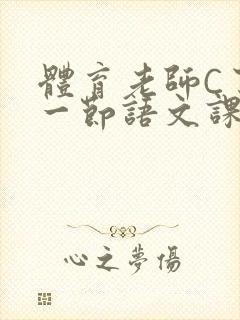 體育老師C了
一節語文課
心之夢傷